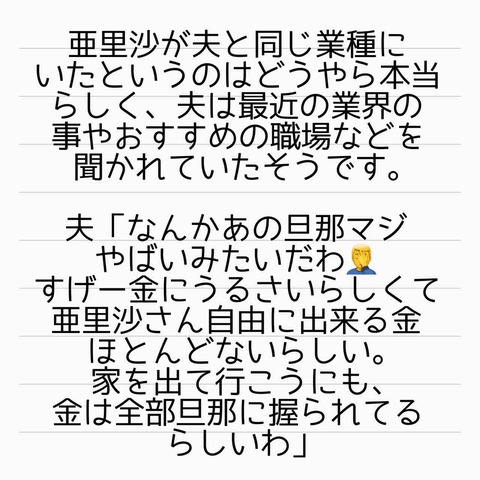 亜里沙が夫と同じ業種に
いたというのはどうやら本当
らしく、夫は最近の業界の
事やおすすめの職場などを
聞かれていたそうです。
夫「なんかあの旦那マジ
やばいみたいだわ🤦‍♂️
すげー金にうるさいらしくて
亜里沙さん自由に出来る金
ほとんどないらしい。
家を出て行こうにも、
金は全部旦那に握られてる
らしいわ」